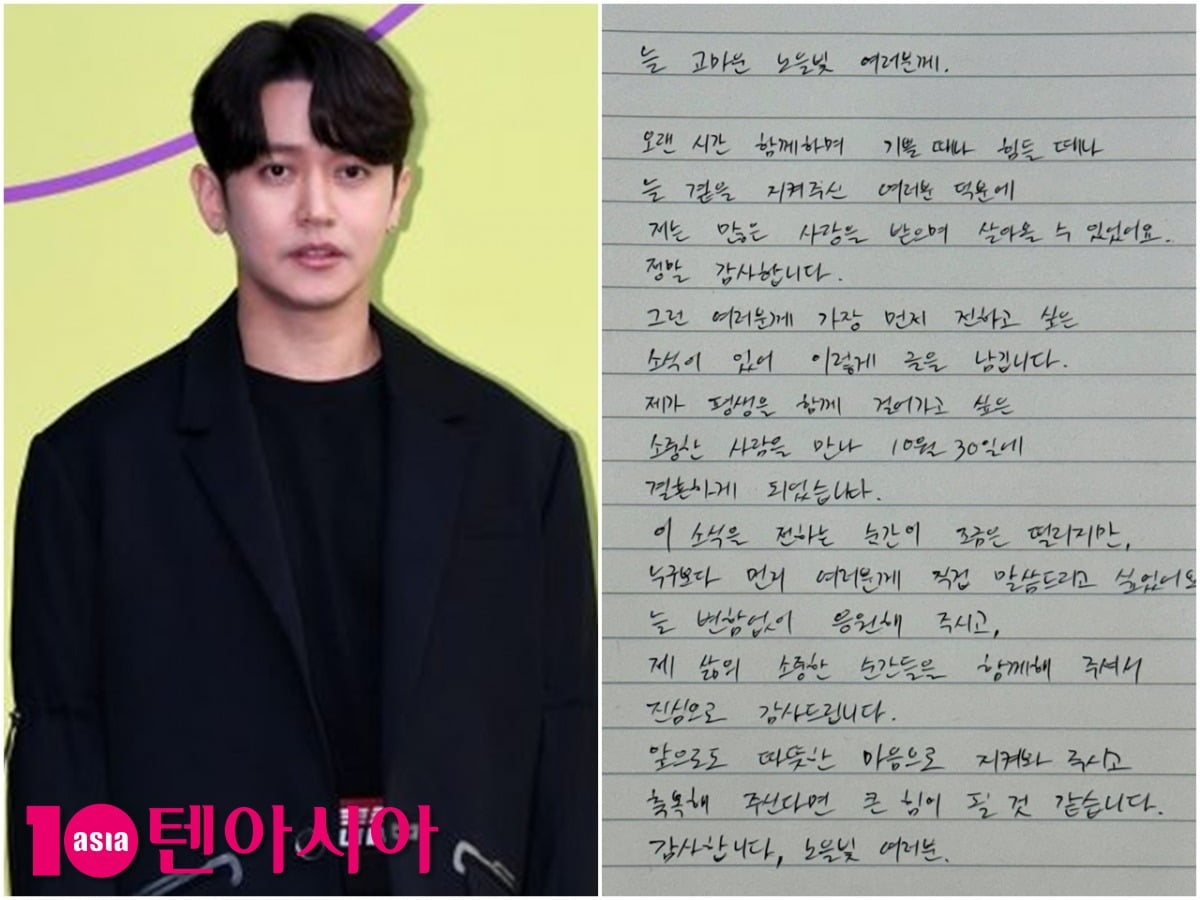 늘 고마운 노을빛 여러분께.
오랜 시간 함께하며 기쁠 때나 힘들 때나
늘 곁을 지켜주신 여러분 덕분에
저는 많은 사랑을 받으며 살아올 수 있었어요.
정말 감사합니다.
그런 여러분께 가장 먼저 전하고 싶은
소식이 있어 이렇게 글을 남깁니다.
제가 평생을 함께 걸어가고 싶은
소중한 사람을 만나 10월 30일에
결혼하게 되었습니다.
이 소식을 전하는 순간이 조금은 떨리지만,
누구보다 먼저 여러분께 직접 말씀드리고 싶었어요
늘 변함없이 응원해 주시고,
제 삶의 소중한 순간들을 함께해 주셔서
진심으로 감사드립니다.
앞으로도 따뜻한 마음으로 지켜봐 주시고
축복해 주신다면 큰 힘이 될 것 같습니다.
감사합니다, 노을빛 여러분.
10 asia 텐아시아